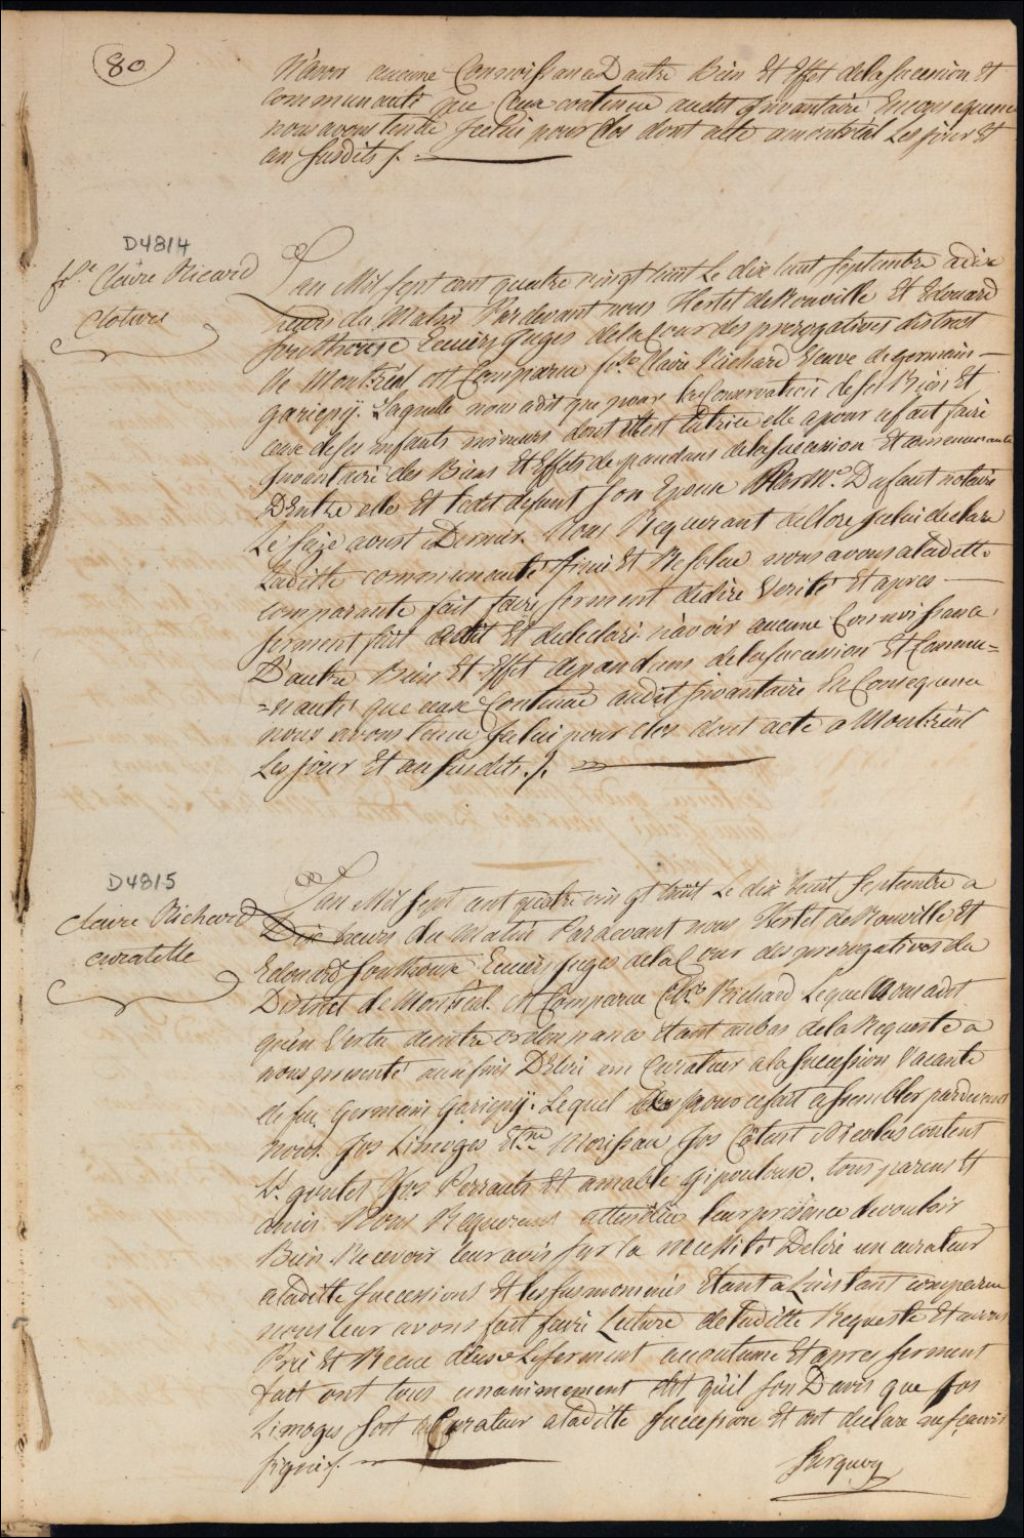 80
N'avoir aucune Connoissance D'autre Bien Et Effet de la succession Et
communauté que Ceux contenue audit Inventaire En consequence
nous avons tenue Icelui pour Clos dont acte a montréal Les jour Et
an susdits ./.
D4814
fse. Claire Ricard
cloture
L'an Mil sept cent quatre vingt huit Le dix huit septembre a dix
heures du Matin Par devant nous Hertel de Rouville Et Edouard
Southouse Ecuiers Juges de la Cour des prerogatives district
de Montréal est Comparue fse. Claire Richard Veuve de germain
garigpÿ. Laquelle nous a dit que pour la Conservation de ses Biens Et
ceux de ses enfants mineurs dont elle est tutrice elle a pour cet fait faire
Inventaire des Biens Et Effets dependans de la succession Et communauté
D'Entre elle Et ledit defunt son Epoux Par Me. Dufaut notaire
Le seize aoust Dernier. Nous Requerant de Clore Icelui declare
Laditte communauté finie Et Resolue nous avons a laditte
comparante fait faire serment de dire Verité Et apres
serment fait a dit Et declaré n'avoir aucune Connoissance
D'autre Bien Et Effet dependans de la succession Et Commu=
=nauté que ceux Contenue audit Inventaire En Consequence
nous avons tenue Icelui pour clos dont acte a Montréal
Les jour Et an susdits ./.
D4815
Claire Richard
curatelle
L'an Mil sept cent quatre vingt huit Le dix huit septembre a
Dix heures du Matin Par devant nous Hertel de Rouville Et
Edouard Southouse Ecuiers Juges de la Cour des prerogatives du
District de Montréal est Comparue Richard Lequel Nous a dit
qu'en Vertu de notre ordonnance Etant au bas de la Requeste a
nous presenté aux fins D'Elire un Curateur a la succession Vacante
de feu Germain Garigpÿ. Lequel pour ce fait assembler par devant
nous Jos Limoges Etne Morissau Jos Côtent Nicolas content
Ls. goulet Jos Perrault Et amable gipouloux. tous parens Et
amis Nous Requerant attendue leur presence de vouloir
Bien Recevoir leur avis sur la necessité D'elire un curateur
a laditte succession Et les susnommés Etant a L'instant comparue
nous leur avons fait faire Lecture de laditte Requeste Et avons
Pris Et Recue d'eux Le serment accoutume Et apres serment
fait ont tous unanimement dit qu'il son D'avis que Jos
Limoges soit Curateur a laditte succession Et ont declare ne sçavoir
signer ./.